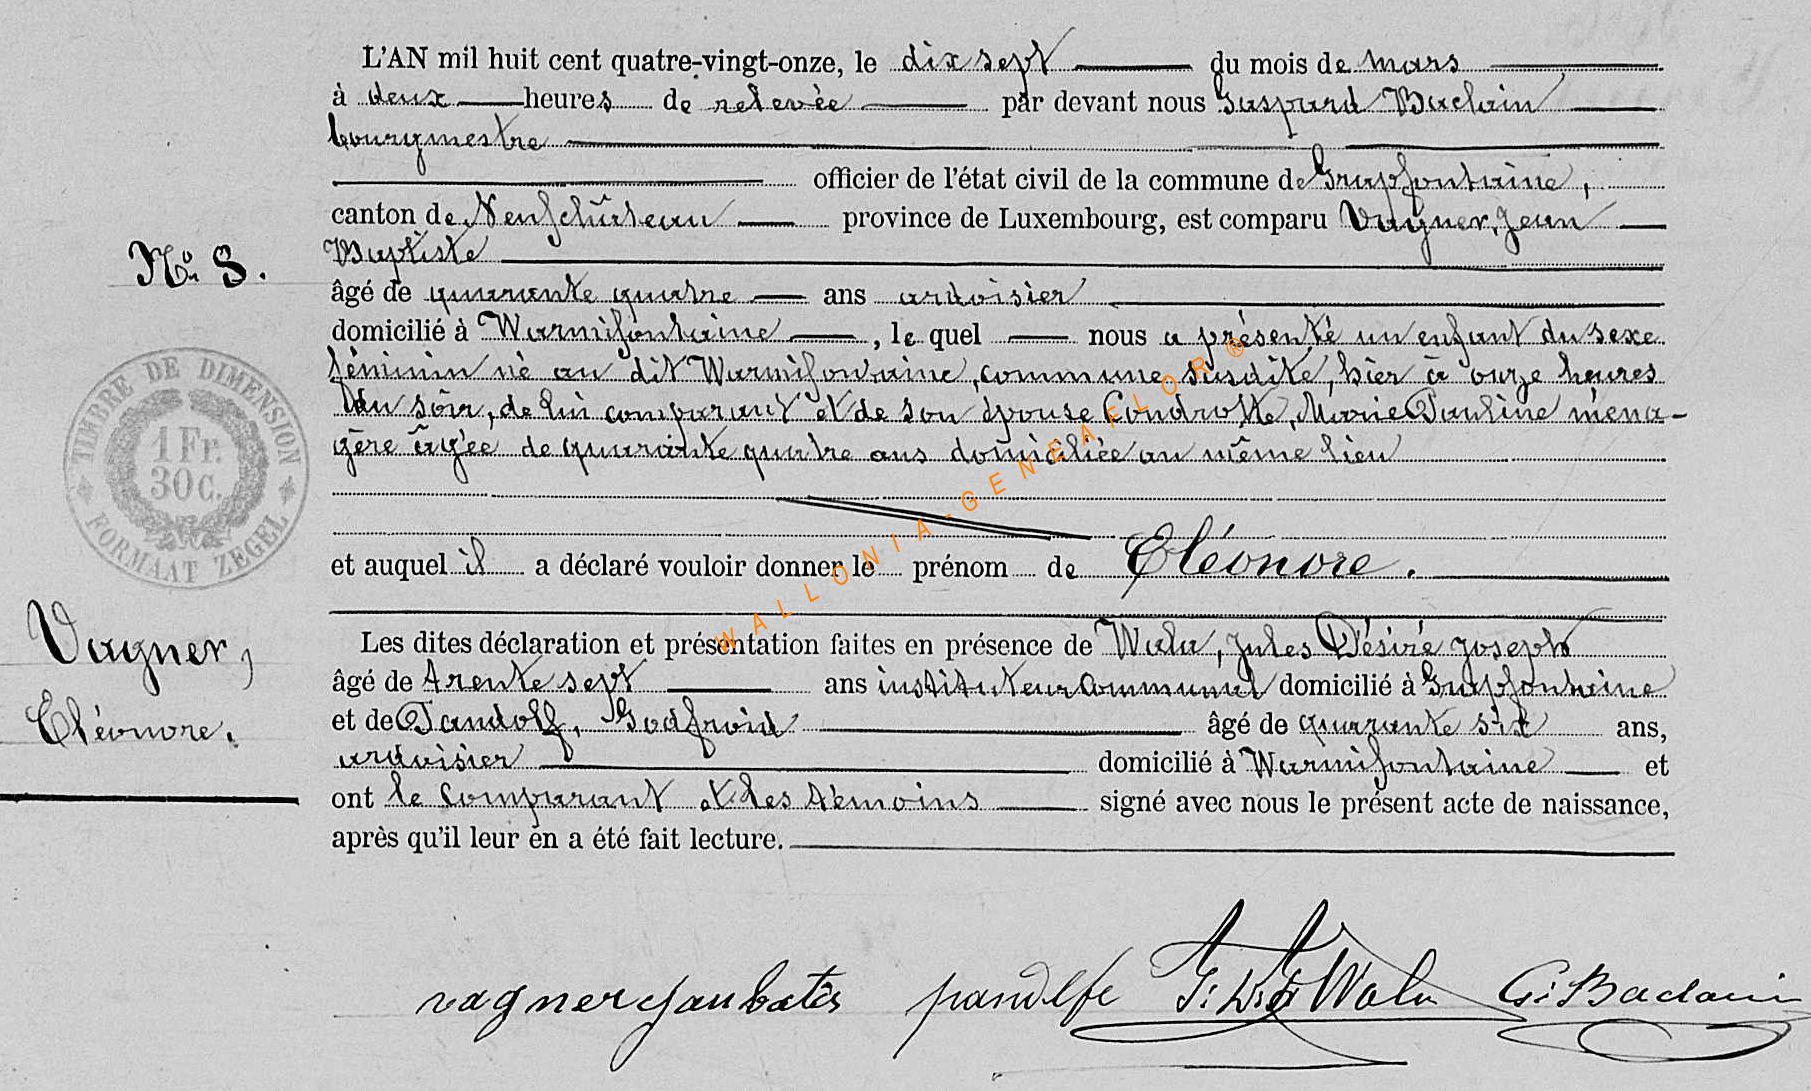 L'AN mil huit cent quatre-vingt-onze, le dix sept du mois de mars
à deux heures de relevée par devant nous Gaspard Baclain
bourgmestre
officier de l'état civil de la commune de Grapfontaine,
canton de Neufchâteau province de Luxembourg, est comparu Vagner, Jean
Baptiste
No 8.
âgé de quarante quatre ans ardoisier
domicilié à Warmifontaine, le quel nous a présenté un enfant du sexe
féminin né au dit Warmifontaine, commune susdite, hier à onze heures
du soir, de lui comparant et de son épouse Condrotte, Marie Pauline ména-
gère âgée de quarante quatre ans domiciliée au même lieu
TIMBRE DE DIMENSION
1 Fr.
30 c.
FORMAAT ZEGEL
et auquel il a déclaré vouloir donner le prénom de Eléonore.
Vagner,
Eléonore.
Les dites déclaration et présentation faites en présence de Wala, Jules Désiré Joseph
âgé de trente sept ans instituteur communal domicilié à Grapfontaine
et de Pandolf, Godfroid âgé de quarante six ans,
ardoisier domicilié à Warmifontaine et
ont le comparant et les témoins signé avec nous le présent acte de naissance,
après qu'il leur en a été fait lecture.
WALLONIA-GENEAFLOR®
vagner jan batis pandolfe Wala G: Baclain